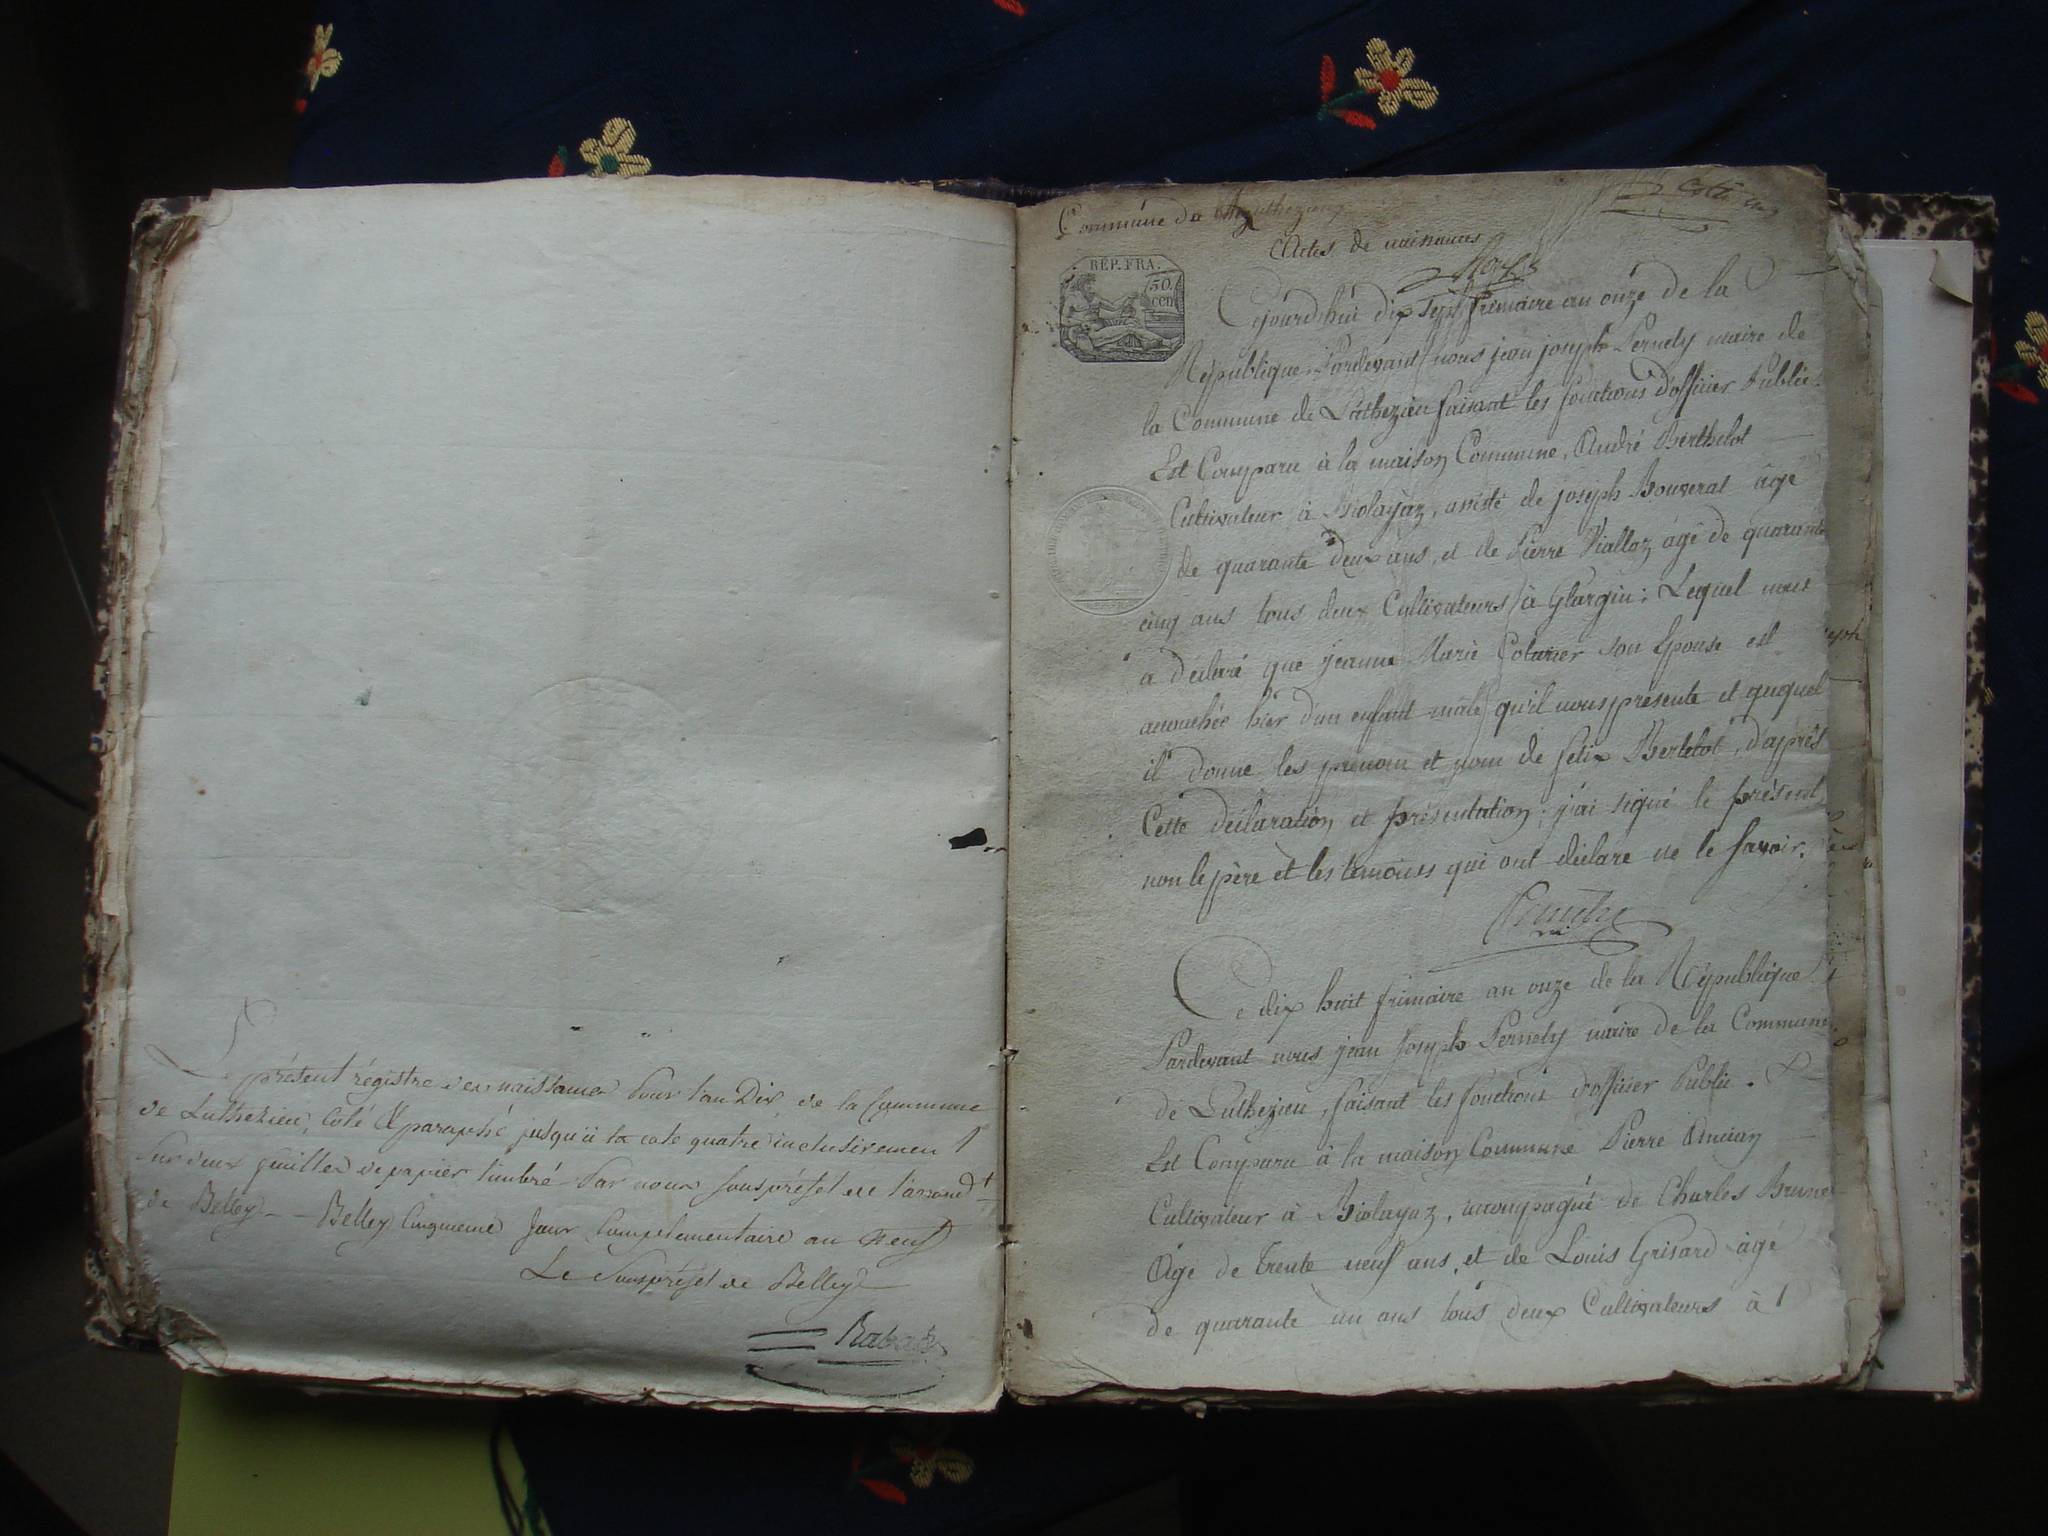 Le présent régistre des naissances pour l'an Dix, de la Commune
de Luthezieu, coté & paraphé jusqu'à la cote quatre inclusivement
sur deux feuilles de papier timbré Par nous souspréfet de l'arrondt
de Belley — Belley Cinquieme jour Complementaire an neuf
Le Souspréfet de Belley
Commune de Luthezieu
Actes de naissances
RÉP. FRA.
50.
cen
Cejourd'hui dix sept frimaire an onze de la
République, Pardevant nous jean joseph Pernety maire de
la Commune de Luthezieu faisant les fonctions d'officier Public.
Est Comparu à la maison Commune, André Berthelot
Cultivateur à Biolayaz, assisté de joseph Bouverat âgé
de quarante deux ans, et de Pierre Vialloz âgé de quarante
cinq ans tous deux Cultivateurs à Glargin; Lequel nous
a déclaré que jeanne Marie son Epouse est
accouchée hier d'un enfant mâle qu'il nous présente et auquel
il donne les prenom et nom de felix Bertelot, d'après
Cette déclaration et présentation; j'ai signé le présent
non le père et les temoins qui ont déclaré ne le savoir.
Ce dix huit frimaire an onze de la République
Pardevant nous jean Joseph Pernety maire de la Commune
de Luthezieu, faisant les fonctions d'officier Public.
Est Comparu à la maison Commune Pierre Ancian
Cultivateur à Biolayaz, accompagné de Charles Brunet
Agé de trente neuf ans, et de Louis Grisard âgé
de quarante un ans tous deux Cultivateurs à